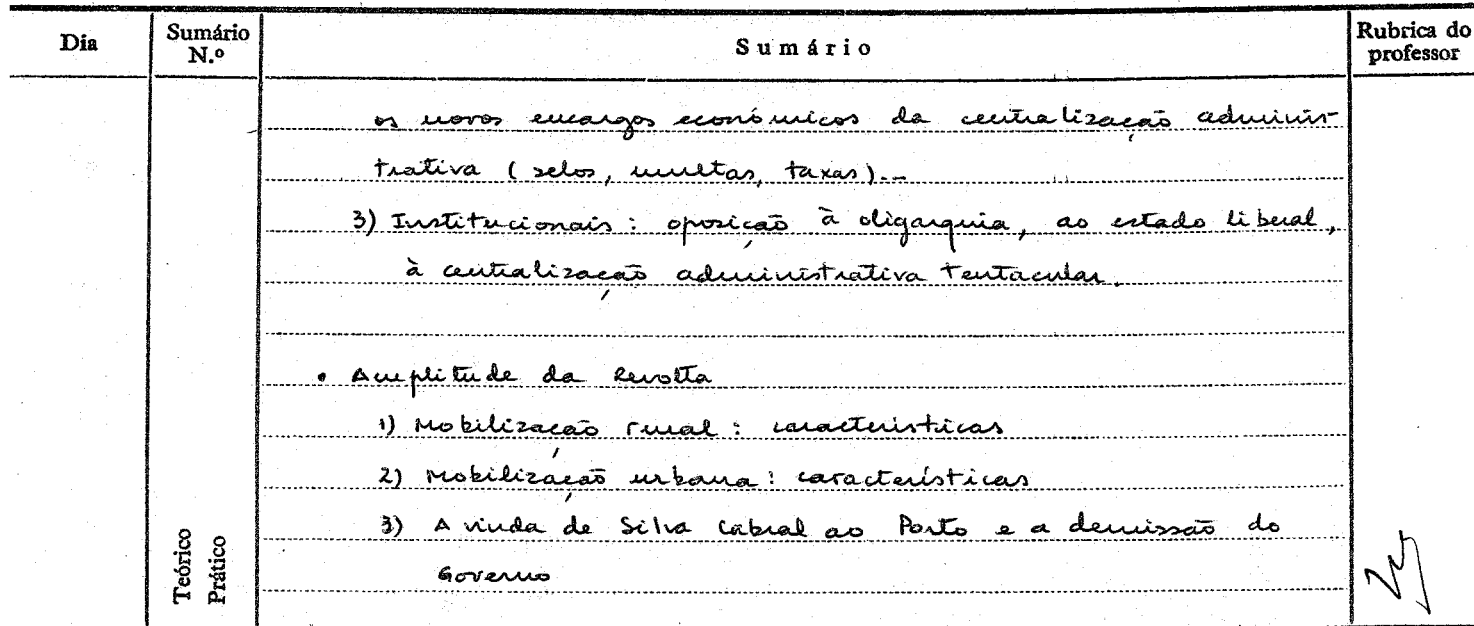 Dia Sumário N.º Sumário Rubrica do professor
os novos encargos económicos da centralização adminis-
trativa (selos, multas, taxas)._
3) Institucionais: oposição à oligarquia, ao estado liberal,
à centralização administrativa tentacular.
• Amplitude da Revolta
1) Mobilização rural: características
2) Mobilização urbana: características
3) A vinda de Silva Cabral ao Porto e a demissão do
Governo
Teórico
Prático